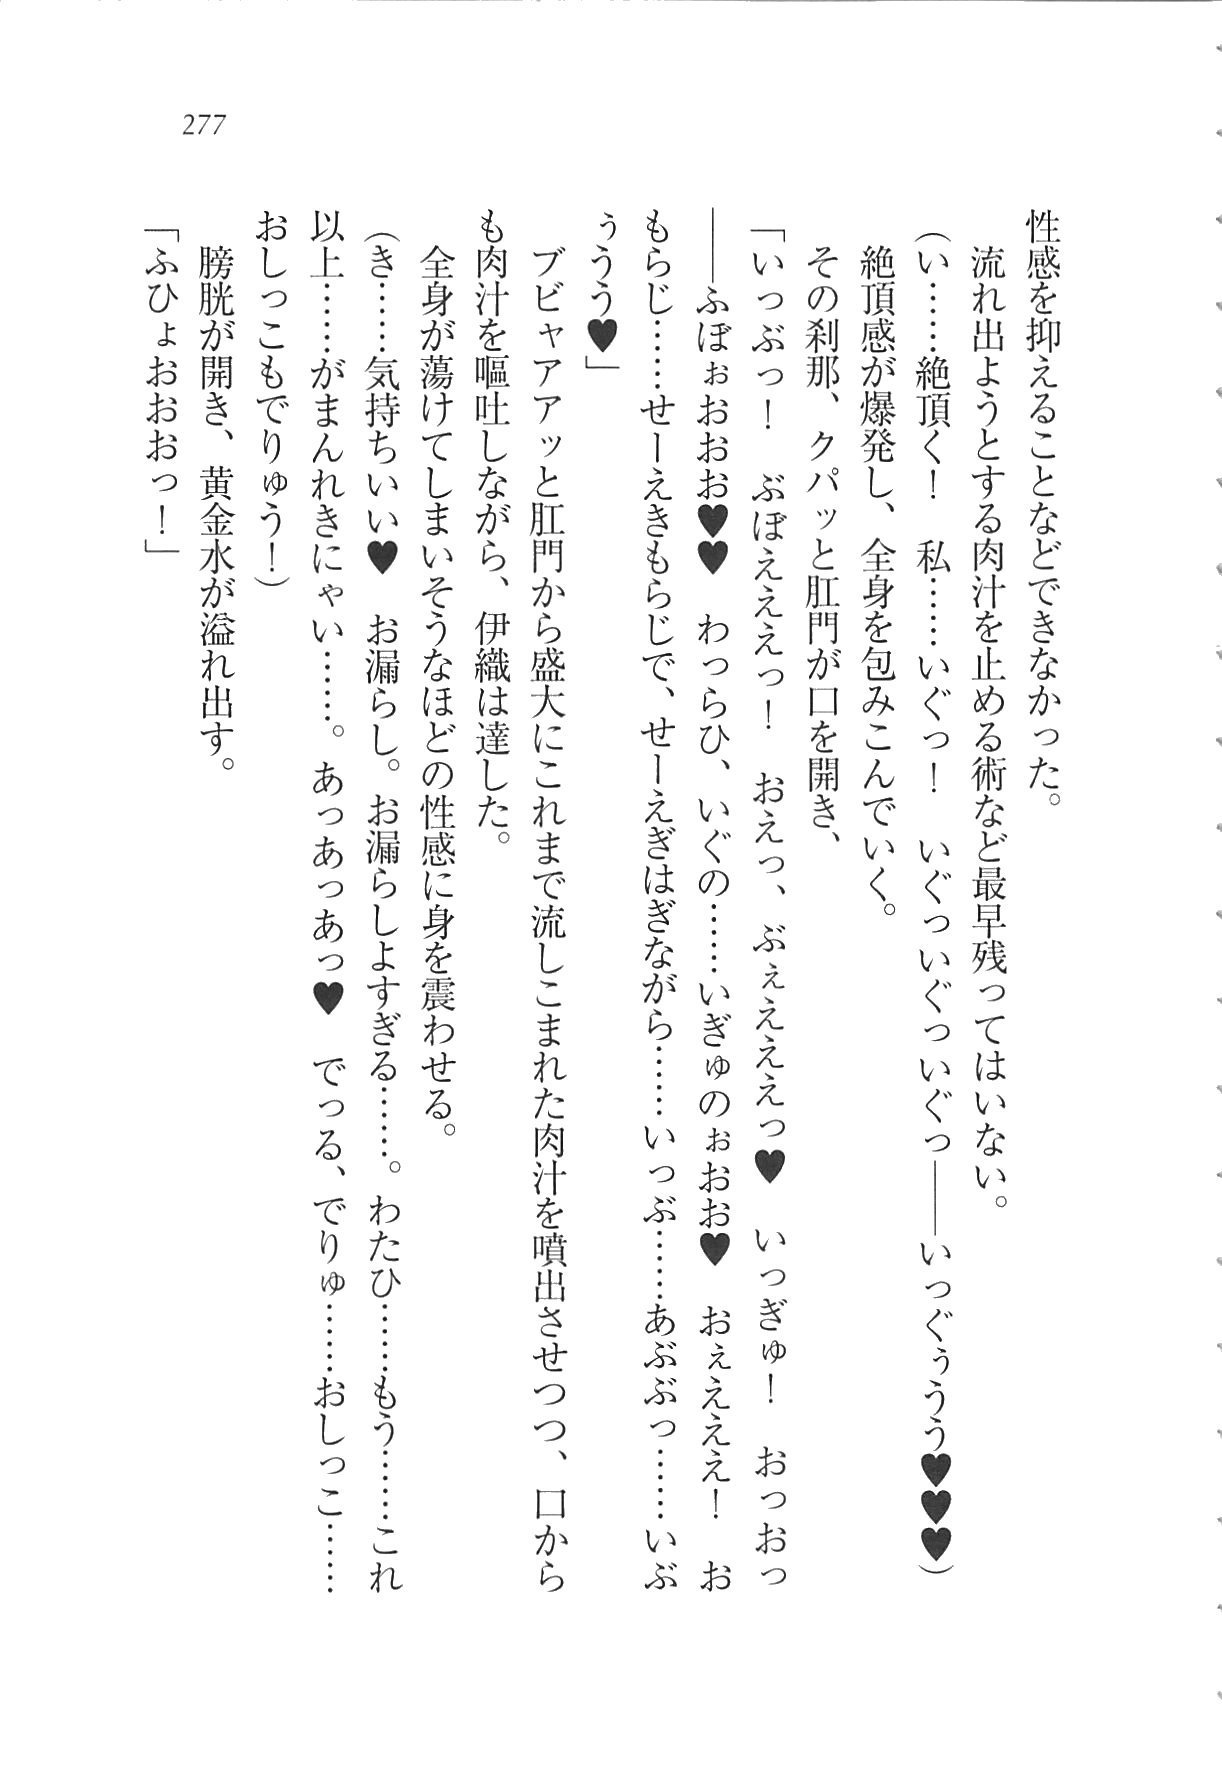 277
性感を抑えることなどできなかった。
　流れ出ようとする肉汁を止める術など最早残ってはいない。
（い……絶頂く！　私……いぐっ！　いぐっいぐっいぐっ――いっぐぅうう♥♥♥）
　絶頂感が爆発し、全身を包みこんでいく。
　その刹那、クパッと肛門が口を開き、
「いっぶっ！　ぶぼえええっ！　おえっ、ぶぇえええっ♥　いっぎゅ！　おっおっ
――ふぼぉおおお♥♥　わっらひ、いぐの……いぎゅのぉおお♥　おぇえええ！　お
もらじ……せーえきもらじで、せーえぎはぎながら……いっぶ……あぶぶっ……いぶ
ぅうう♥」
　ブビャアアッと肛門から盛大にこれまで流しこまれた肉汁を噴出させつつ、口から
も肉汁を嘔吐しながら、伊織は達した。
　全身が蕩けてしまいそうなほどの性感に身を震わせる。
（き……気持ちいい♥　お漏らし。お漏らしよすぎる……。わたひ……もう……これ
以上……がまんれきにゃい……。あっあっあっ♥　でっる、でりゅ……おしっこ……
おしっこもでりゅう！）
　膀胱が開き、黄金水が溢れ出す。
「ふひょおおおっ！」